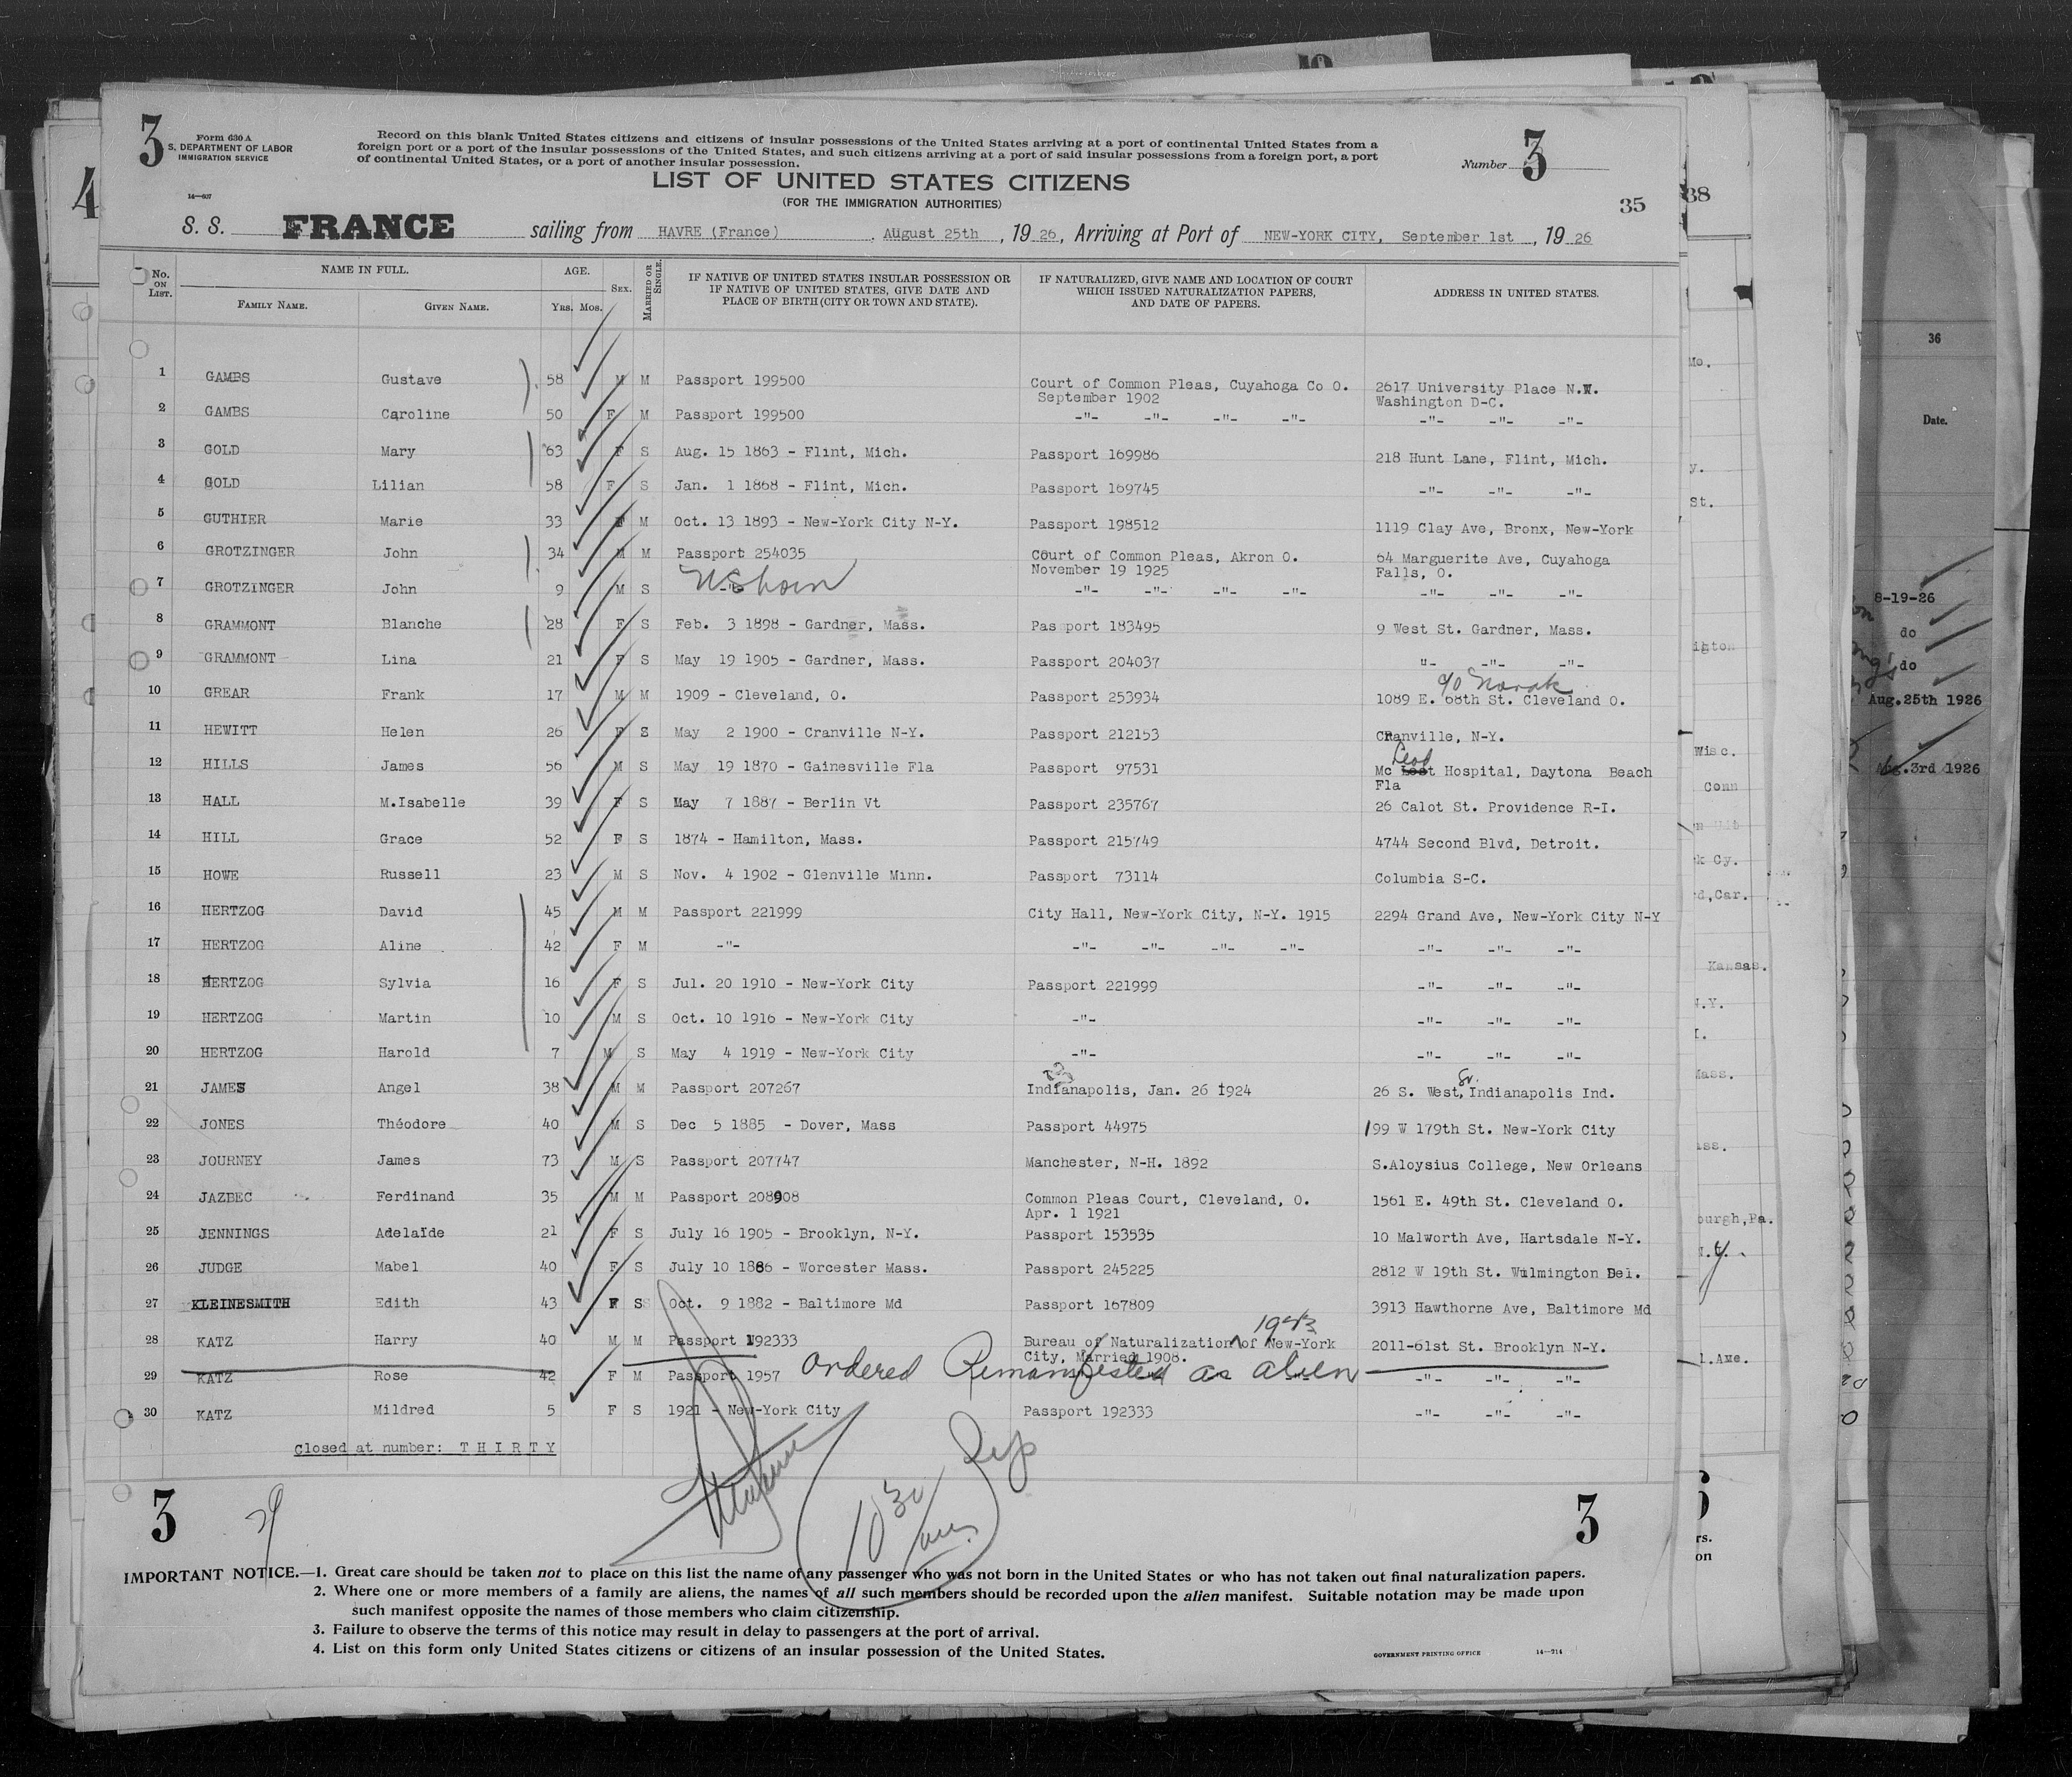 3
Form 630 A
S. DEPARTMENT OF LABOR
IMMIGRATION SERVICE
14—607
Record on this blank United States citizens and citizens of insular possessions of the United States arriving at a port of continental United States from a
foreign port or a port of the insular possessions of the United States, and such citizens arriving at a port of said insular possessions from a foreign port, a port
of continental United States, or a port of another insular possession.
Number 3
LIST OF UNITED STATES CITIZENS
(FOR THE IMMIGRATION AUTHORITIES)
35
S. S. FRANCE sailing from HAVRE (France), August 25th, 19 26, Arriving at Port of NEW-YORK CITY, September 1st, 19 26
No. ON LIST. NAME IN FULL. FAMILY NAME. GIVEN NAME. AGE. YRS. MOS. SEX. MARRIED OR SINGLE. IF NATIVE OF UNITED STATES INSULAR POSSESSION OR IF NATIVE OF UNITED STATES, GIVE DATE AND PLACE OF BIRTH (CITY OR TOWN AND STATE). IF NATURALIZED, GIVE NAME AND LOCATION OF COURT WHICH ISSUED NATURALIZATION PAPERS, AND DATE OF PAPERS. ADDRESS IN UNITED STATES.
1 GAMBS Gustave 58 M M Passport 199500 Court of Common Pleas, Cuyahoga Co O. 2617 University Place N.W.
September 1902 Washington D-C.
2 GAMBS Caroline 50 F M Passport 199500 -"- -"- -"- -"- -"- -"- -"-
3 GOLD Mary 63 F S Aug. 15 1863 - Flint, Mich. Passport 169986 218 Hunt Lane, Flint, Mich.
4 GOLD Lilian 58 F S Jan. 1 1868 - Flint, Mich. Passport 169745 -"- -"- -"-
5 GUTHIER Marie 33 F M Oct. 13 1893 - New-York City N-Y. Passport 198512 1119 Clay Ave, Bronx, New-York
6 GROTZINGER John 34 M M Passport 254035 Court of Common Pleas, Akron O. 64 Marguerite Ave, Cuyahoga
November 19 1925 Falls, O.
7 GROTZINGER John 9 M S -"- US born -"- -"- -"- -"- -"- -"- -"-
8 GRAMMONT Blanche 28 F S Feb. 3 1898 - Gardner, Mass. Passport 183495 9 West St. Gardner, Mass.
9 GRAMMONT Lina 21 F S May 19 1905 - Gardner, Mass. Passport 204037 "- -"- -"-
c/o Novak
10 GREAR Frank 17 M M 1909 - Cleveland, O. Passport 253934 1089 E. 68th St. Cleveland O.
11 HEWITT Helen 26 F S May 2 1900 - Cranville N-Y. Passport 212153 CRanville, N-Y.
12 HILLS James 56 M S May 19 1870 - Gainesville Fla Passport 97531 Mc Leod Hospital, Daytona Beach
Fla
13 HALL M.Isabelle 39 F S May 7 1887 - Berlin Vt Passport 235767 26 Calot St. Providence R-I.
14 HILL Grace 52 F S 1874 - Hamilton, Mass. Passport 215749 4744 Second Blvd, Detroit.
15 HOWE Russell 23 M S Nov. 4 1902 - Glenville Minn. Passport 73114 Columbia S-C.
16 HERTZOG David 45 M M Passport 221999 City Hall, New-York City, N-Y. 1915 2294 Grand Ave, New-York City N-Y
17 HERTZOG Aline 42 F M -"- -"- -"- -"- -"- -"- -"- -"-
18 HERTZOG Sylvia 16 F S Jul. 20 1910 - New-York City Passport 221999 -"- -"- -"-
19 HERTZOG Martin 10 M S Oct. 10 1916 - New-York City -"- -"- -"- -"-
20 HERTZOG Harold 7 M S May 4 1919 - New-York City -"- -"- -"- -"-
21 JAMES Angel 38 M M Passport 207267 Indianapolis, Jan. 26 1924 26 S. West, St. Indianapolis Ind.
22 JONES Théodore 40 M S Dec 5 1885 - Dover, Mass Passport 44975 199 W 179th St. New-York City
23 JOURNEY James 73 M S Passport 207747 Manchester, N-H. 1892 S.Aloysius College, New Orleans
24 JAZBEC Ferdinand 35 M M Passport 208908 Common Pleas Court, Cleveland, O. 1561 E. 49th St. Cleveland O.
Apr. 1 1921
25 JENNINGS Adelaïde 21 F S July 16 1905 - Brooklyn, N-Y. Passport 153535 10 Malworth Ave, Hartsdale N-Y.
26 JUDGE Mabel 40 F S July 10 1886 - Worcester Mass. Passport 245225 2812 W 19th St. Wilmington Del.
27 KLEINESMITH Edith 43 F S Oct. 9 1882 - Baltimore Md Passport 167809 3913 Hawthorne Ave, Baltimore Md
28 KATZ Harry 40 M M Passport 192333 Bureau of Naturalization of New-York 2011-61st St. Brooklyn N-Y.
City, Married 1908.
Ordered Remanifested as alien
29 KATZ Rose 42 F M Passport 1957 -"- -"- -"-
30 KATZ Mildred 5 F S 1921 - New-York City Passport 192333 -"- -"- -"-
Closed at number: T H I R T Y
10 30
3
29
3
IMPORTANT NOTICE.—1. Great care should be taken not to place on this list the name of any passenger who was not born in the United States or who has not taken out final naturalization papers.
2. Where one or more members of a family are aliens, the names of all such members should be recorded upon the alien manifest. Suitable notation may be made upon
such manifest opposite the names of those members who claim citizenship.
3. Failure to observe the terms of this notice may result in delay to passengers at the port of arrival.
4. List on this form only United States citizens or citizens of an insular possession of the United States.
GOVERNMENT PRINTING OFFICE 14—714
4
38
36
Date.
8-19-26
do
do
Aug.25th 1926
Aug.3rd 1926
Mo.
St.
Wisc.
Conn
Kansas.
N.Y.
Mass.
burgh,Pa.